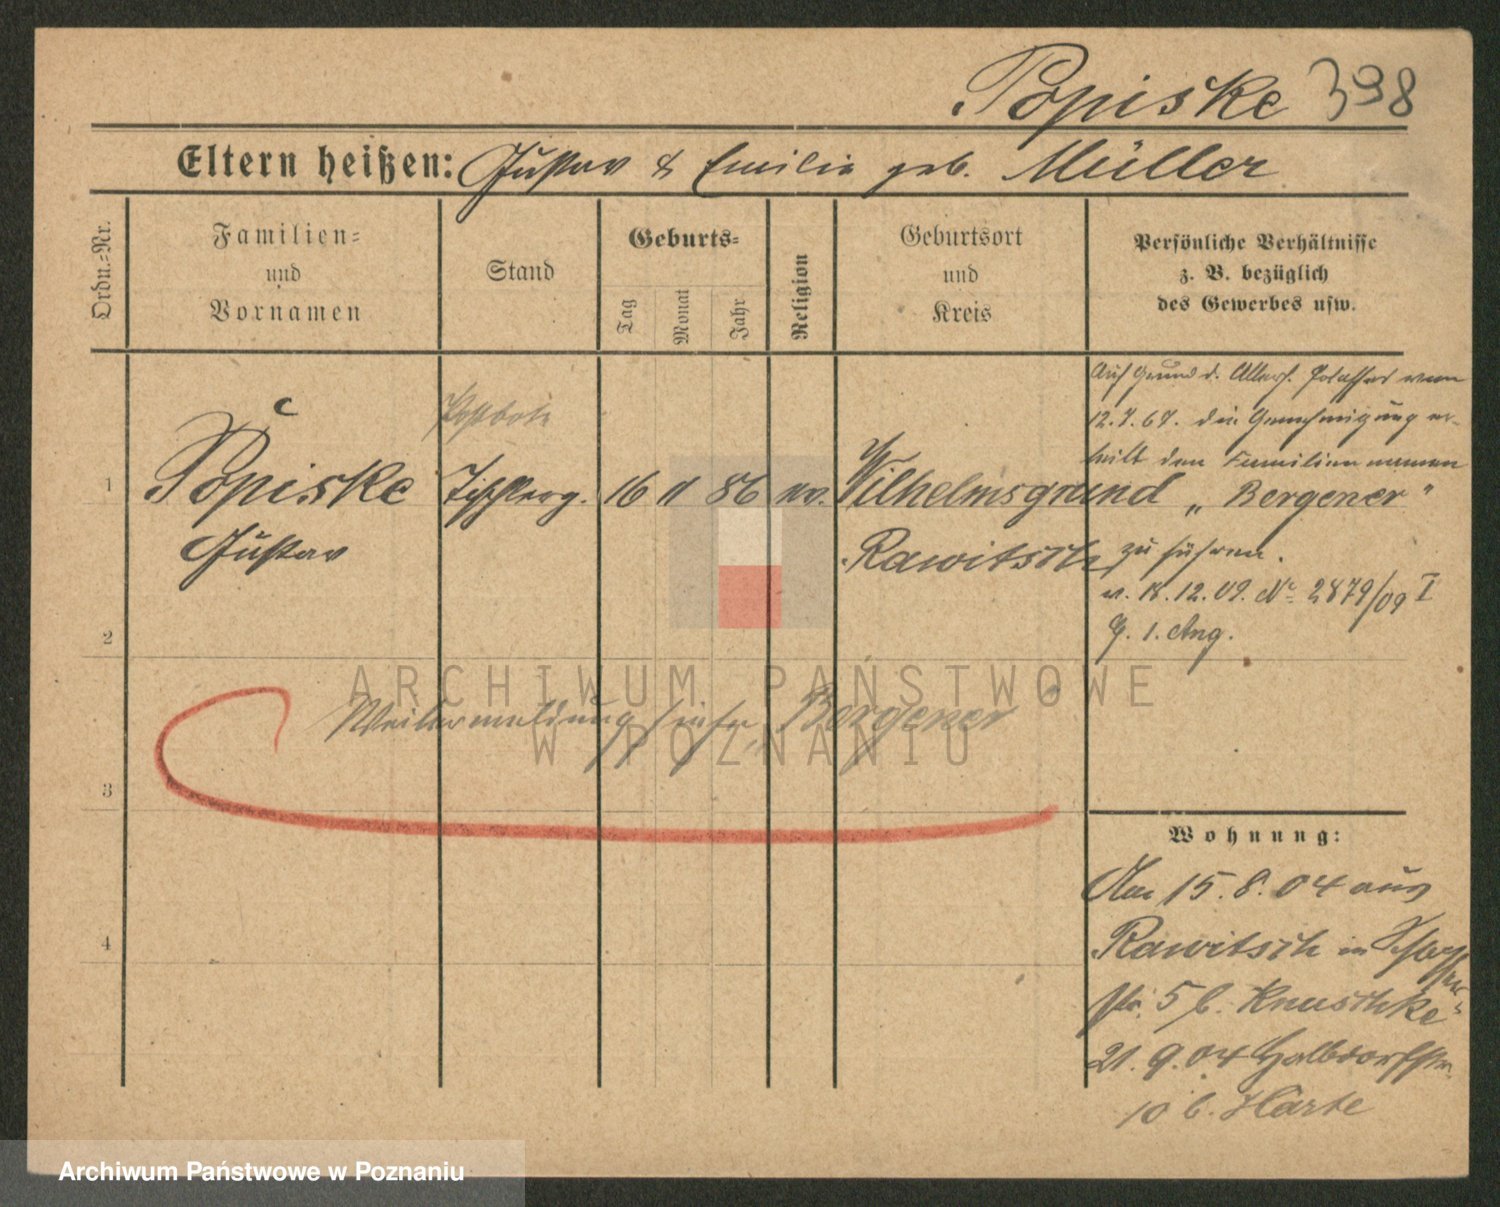 Popiske 398
Eltern heißen: Gustav & Emilie geb. Müller
Ordn.-Nr.
Familien-
und
Vornamen
Stand
Geburts-
Tag
Monat
Jahr
Religion
Geburtsort
und
Kreis
Persönliche Verhältnisse
z. B. bezüglich
des Gewerbes usw.
Postbote
1 Popiske Tischlerg. 16 11 86 ev. Wilhelmsgrund
Gustav Rawitsch
Auf Grund d. Allerh. Erlasses vom
12.7.67. die Genehmigung er-
teilt den Familiennamen
„Bergener"
zu führen.
v. 18.12.09. No 2879/09 I
G. 1. Ang.
2
Weitermeldung siehe „Bergener
3
4
Wohnung:
Am 15.8.04 aus
Rawitsch in
str. 5 b. Knuschke
21.9.04 Halbdorfstr.
10 b. Harte
ARCHIWUM PAŃSTWOWE
W POZNANIU
Archiwum Państwowe w Poznaniu